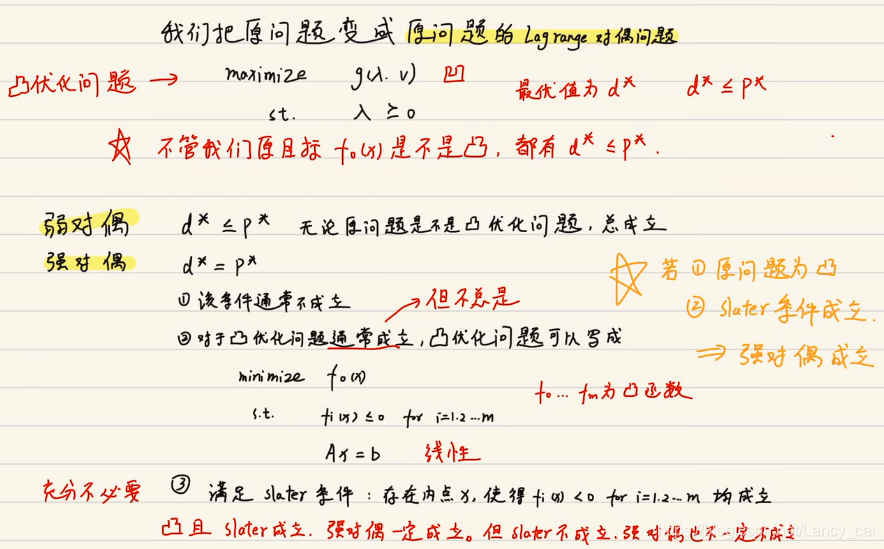 我们把原问题变成原问题的Lagrange对偶问题
凸优化问题 → maximize g(λ.ν) 凹 最优值为d* d* ≤ p*
st. λ ≥ 0
☆ 不管我们原目标 f₀(x)是不是凸, 都有 d* ≤ p*.
弱对偶 d* ≤ p* 无论原问题是不是凸优化问题, 总成立
强对偶 d* = p*
① 该条件通常不成立
→ 但不总是
② 对于凸优化问题通常成立, 凸优化问题可以写成
☆ 若 ① 原问题为凸
② slater 条件成立.
⇒ 强对偶成立
minimize f₀(x)
s.t. fi(x) ≤ 0 for i=1.2...m
f₀...fm为凸函数
Ax = b 线性
充分不必要 ③ 满足 slater 条件: 存在内点x, 使得fi(x) < 0 for i=1.2...m 均成立
凸且 slater成立. 强对偶一定成立。但 slater 不成立. 强对偶也不一定不成立
Lancy_cai